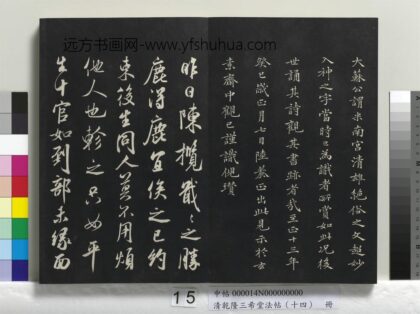 远方书画网-www.yfshuhua.com
大蘇公謂米南宮清雄絕俗之文超妙
入神之字當時已為識者所賞如此况後
世誦其詩觀其書跡者哉至正十三年
癸巳歲正月七日陸基出此見示於玄
素齋中觀已謹識俔瓚
昨日陳攬戢戢之勝
鹿得鹿宜倏之已約
束後生同人莫不用煩
他人也軫之只如平
生十官如到部未緣面
15
申帖 000014N000000000
清乾隆三希堂法帖（十四） 冊